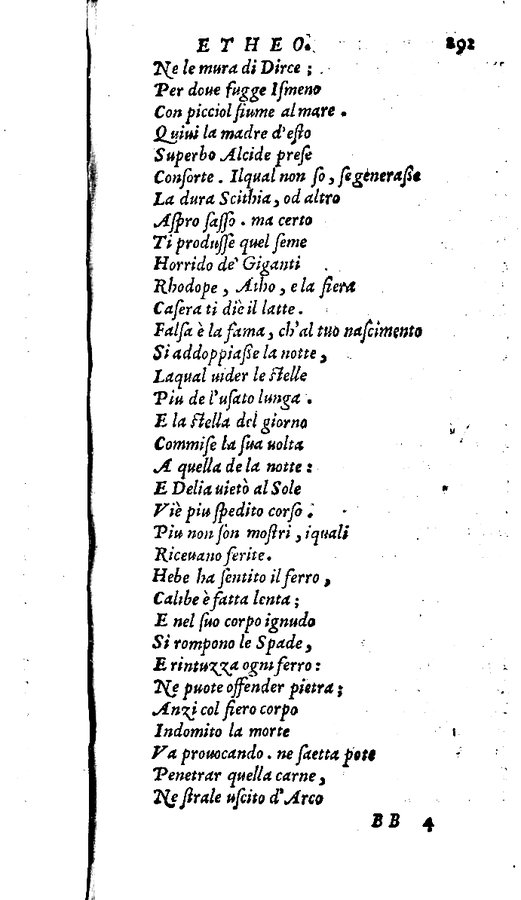 ETHEO. 292
Ne le mura di Dirce;
Per doue fugge Iſmeno
Con picciol fiume al mare.
Quiui la madre d'eſto
Superbo Alcide preſe
Conſorte. Ilqual non ſo, ſe generaſſe
La dura Scithia, od altro
Aſpro ſaſſo. ma certo
Ti produſſe quel ſeme
Horrido de' Giganti
Rhodope, Atho, e la fiera
Caſera ti diè il latte.
Falſa è la fama, ch'al tuo naſcimento
Si addoppiaſſe la notte,
Laqual uider le ſtelle
Piu de l'uſato lunga.
E la ſtella del giorno
Commiſe la ſua uolta
A quella de la notte:
E Delia uietò al Sole
Viè piu ſpedito corſo.
Piu non ſon moſtri, iquali
Riceuano ferite.
Hebe ha ſentito il ferro,
Calibe è fatta lenta;
E nel ſuo corpo ignudo
Si rompono le Spade,
E rintuzza ogni ferro:
Ne puote offender pietra;
Anzi col fiero corpo
Indomito la morte
Va prouocando. ne ſaetta pote
Penetrar quella carne,
Ne ſtrale uſcito d'Arco
BB 4